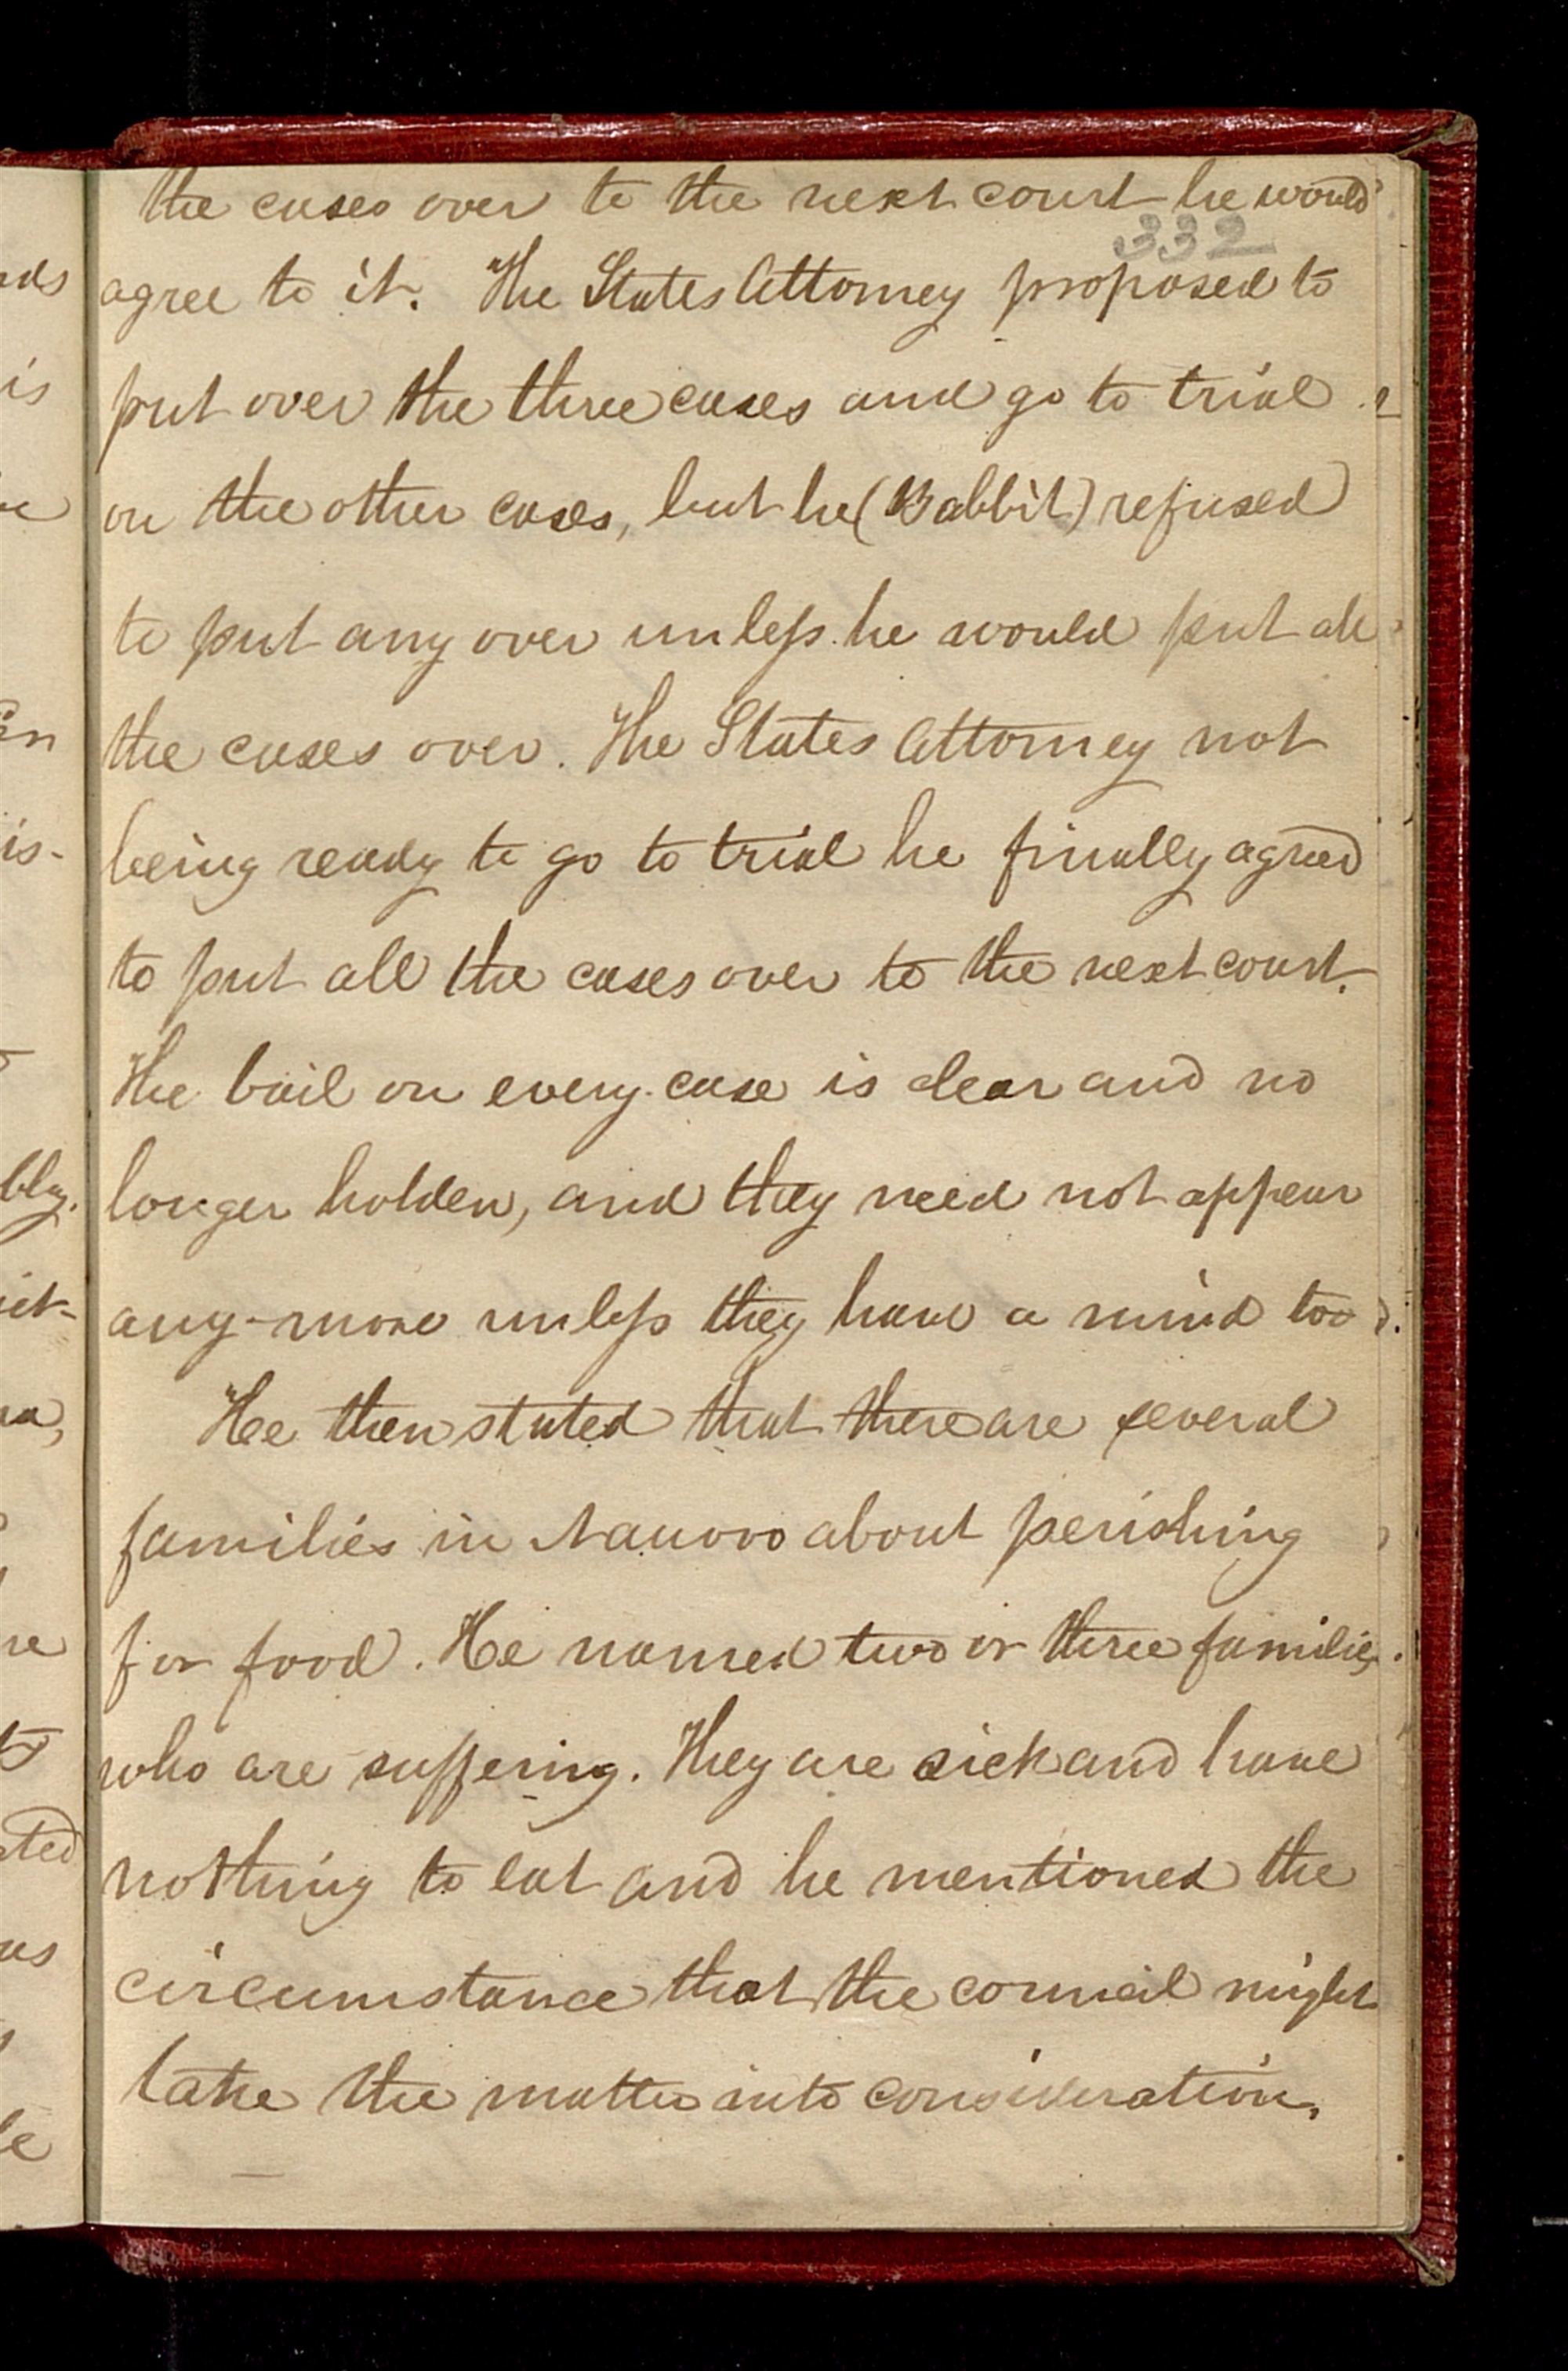 the cases over to the next court he would
332
agree to it. The States Attorney proposed to
put over the three cases and go to trial
on the other cases, but he (Babbit) refused
to put any over unless he would put all
the cases over. The States Attorney not
being ready to go to trial he finally agreed
to put all the cases over to the next court.
The bail on every case is clear and no
longer holden, and they need not appear
any-more unless they have a mind too.
He then stated that there are several
families in Nauvoo about perishing
for food. He named two or three families
who are suffering. They are sick and have
nothing to eat and he mentioned the
circumstance that the council might
take the matter into consideration.